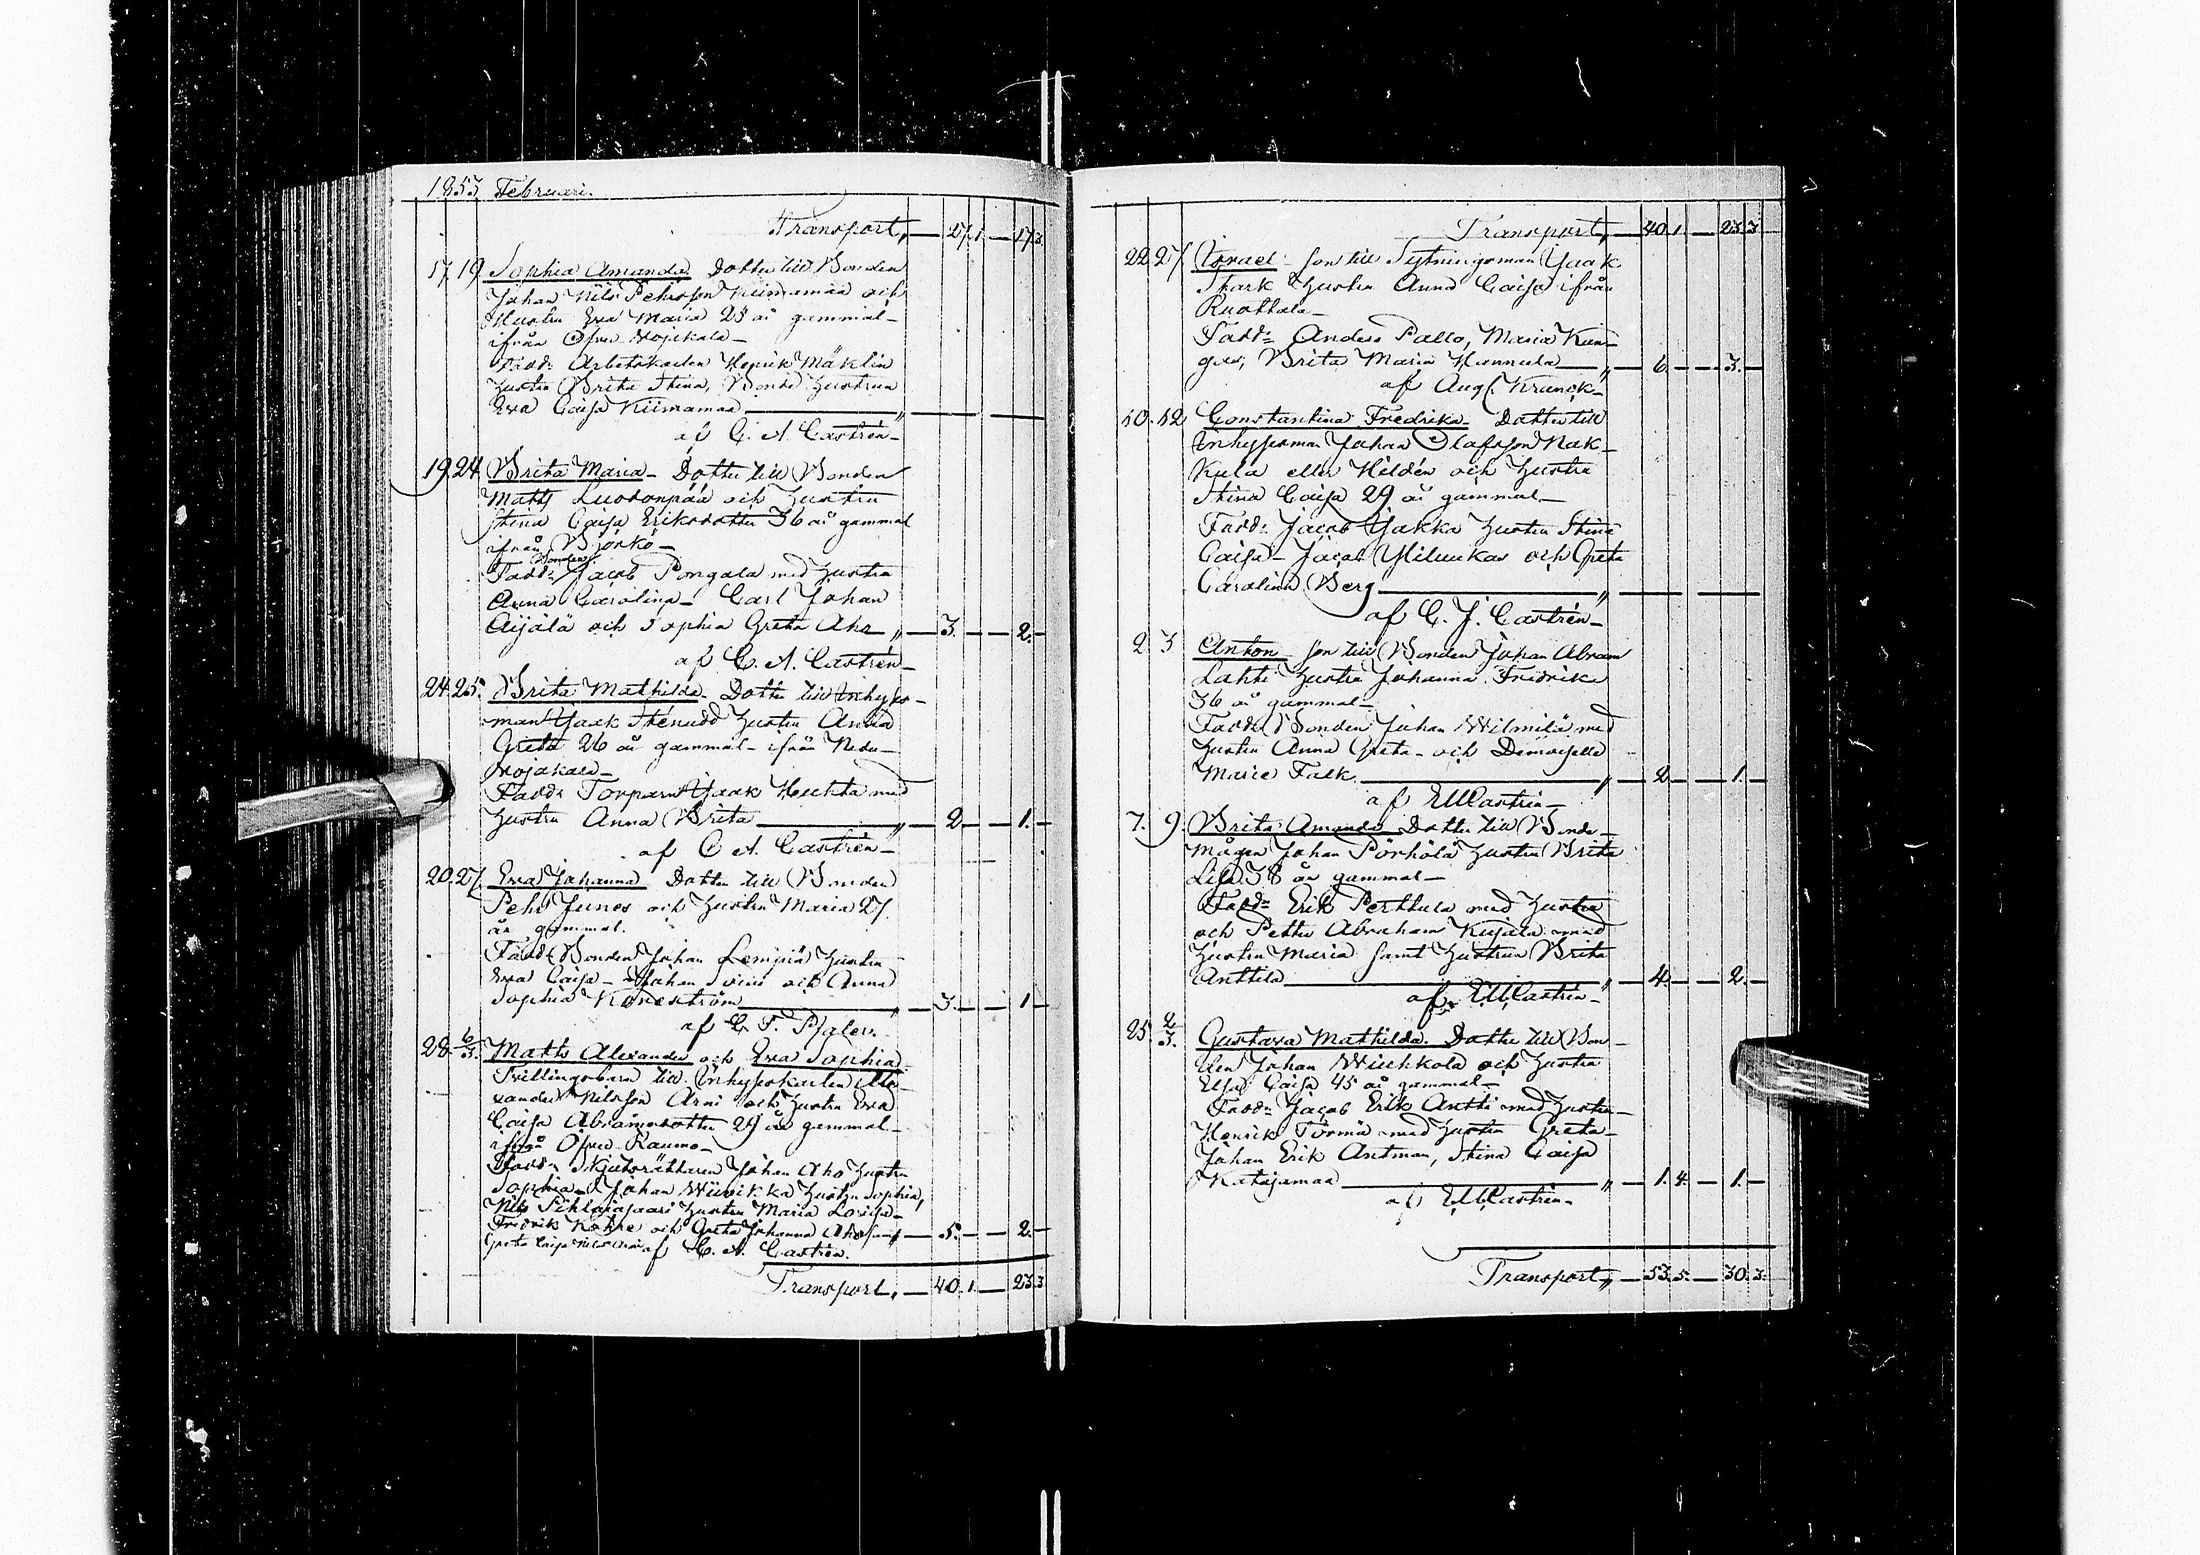 1853 Februari.
Transport, — 27. 1. — 17. 3.
17. 19. Sophia Amanda. Dotter till Bonden
Johan Nils Pehrsson Kiimamaa och
Hustru Eva Maria 25 år gammal –
ifrån Öfver Wojakala –
Fadd: Arbetskarlen Henrik Mäklin
hustru Brita Stina, Bonde hustrun
Eva Caisa Kiimamaa — „ —
af C. A. Castrén –
19. 24. Brita Maria – Dotter till Bonden
Matts Luodonpää och hustru
Stina Caisa Eriksdotter 36 år gammal
ifrån Björkö –
Bonden
Fadd: Jacob Pongala med hustru
Anna Carolina – Carl Johan
Äijälä och Sophia Greta Aho „ — 3. — — 2. —
af C. A. Castrén –
24. 25. Brita Mathilda. Dotter till Inhyses-
man Isaak Stenudd hustru Anna
Greta 26 år gammal – ifrån Neder-
wojakala –
Fadd: Torparen Isaak Huhta med
hustru Anna Brita — „ — 2 — — 1. —
af C. A. Castrén –
20. 27. Eva Johanna Dotter till Bonden
Pehr Junes och hustru Maria 27
år gammal.
Fadd: Bonden Johan Lempiä hustru
Eva Caisa – Johan Soini och Anna
Sophia — „ — 3. — — 1 —
af C. F.
28. 6/3. Matts Alexander och Eva Sophia
Tvillingsbarn till Inhyseskarlen Alex-
ander Nilsson Arni och hustru Eva
Caisa Abramsdotter 29 år gammal –
ifrån Öfver Raumo –
Fadd: Skjutsrättaren Johan Aho hustru
Sophia – Johan Wiinikka hustru Sophia,
Nils Pihlajasaari hustru Maria Lovisa –
Fredrik Kohre och Greta Johanna Aho samt „ — 5. — — 2. —
Greta Caisa af C. A. Castrén.
Transport, — 40. 1. — 23. 3.
Transport, — 40. 1. — 23. 3.
22. 27. Israel – son till Sytningsman Isaak
Stark hustru Anna Caisa ifrån
Ruottala –
Fadd: Anders Pallo, Maria Kun-
gas, Brita Maria Hannula — „ — 6. — — 3. —
af Aug. Krunck –
10. 12 Constantina Fredrika – Dotter till
Inhysesman Johan Olafsson Nak-
kula eller Hildén och hustru
Stina Caisa 29 år gammal –
Fadd: Jacob Jakka hustru Stina
Caisa – Jacob Yliluukas och Greta
Carolina Berg — „ —
af C. J. Castrén –
2 3 Anton son till Bonden Johan Abram
Lahti hustru Johanna Fredrika
36 år gammal –
Fadd: Bonden Johan Wilmilä med
hustru Anna Greta – och Demoiselle
Marie Falk. — „ — 2 — — 1. —
af EMCastrén –
7. 9. Brita Amanda Dotter till Bonde-
mågen Johan Pörhölä hustru Brita
Lisa 38 år gammal –
Fadd: Erik Perttula med hustru
och Petter Abraham Kujala med
hustru Maria samt hustrun Brita
Anttila — „ — 4. — — 2. —
af EMCastrén –
25. 2/3. Gustava Mathilda. Dotter till Bon-
den Johan Wiuhkola och hustru
Elsa Caisa 45 år gammal –
Fadd: Jacob Erik Antti med hustru –
Henrik Törmä med hustru Greta –
Johan Erik Antman, Stina Caisa
Katajamaa — „ — 1. 4. — 1. —
af EMCastrén –
Transport, — 53. 5. — 30. 3.